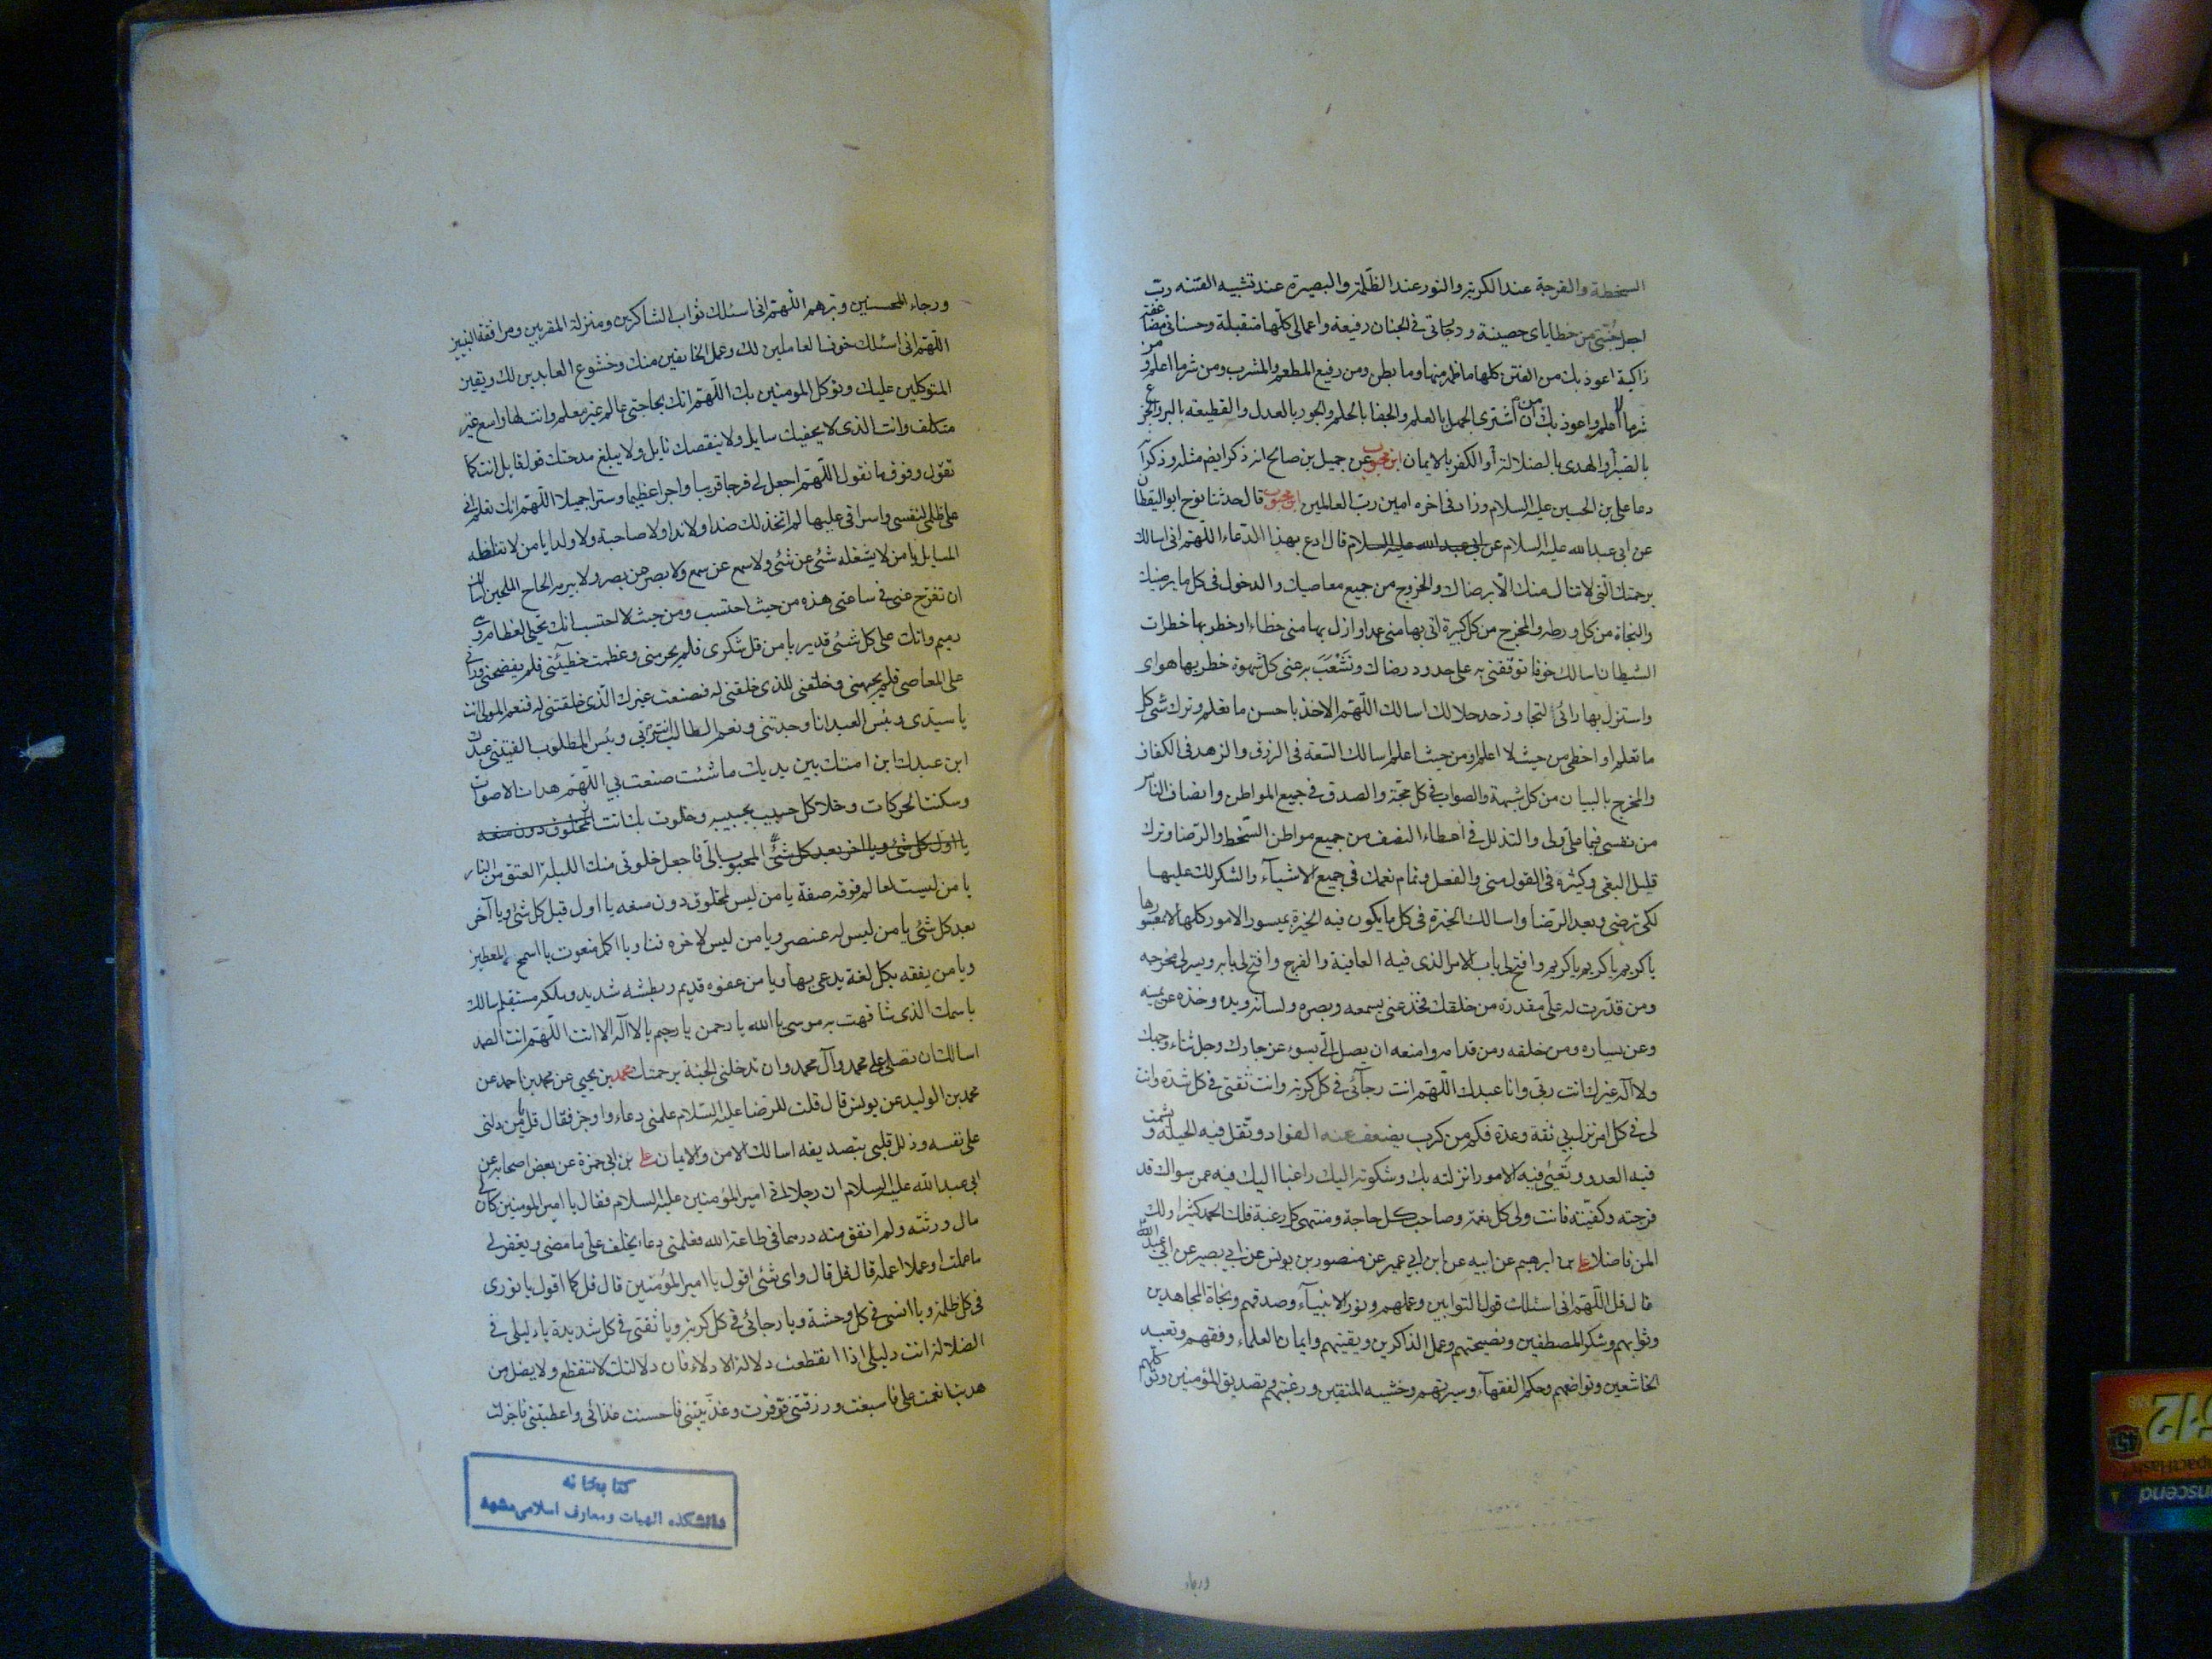 السخطة والفرجة عند الكربة والنور عند الظلمة والبصيرة عند تشبيه الفتنه ربّ
اجعل جُنّتى من خطاياى حصينة ودرجاتى فى الجنان رفيعة واعمالى كلّها متقبلة وحسناتى مضاعفة
زاكية اعوذ بك من الفتن كلها ما ظهر منها وما بطن ومن رفيع المطعم والمشرب ومن شر ما اعلم ومن
شر ما لا اعلم واعوذ بك من ان اشترى الجهل بالعلم والجفا بالحلم والجور بالعدل والقطيعه بالبر والجزع
بالصّبر أو الهدى بالضلالة أو الكفر بالايمان ابن محبوب عن جميل بن صالح انه ذكر ايضم مثله وذكر انّ
دعا على بن الحسين عليه السلام وزاد فى اخره امين ربّ العالمين ابن محبوب قال حدثنا نوح ابو اليقظان
عن ابى عبد الله عليه السلام عن ابى عبد الله عليه السلام قال ادع بهذا الدّعاء اللّهمّ انى اسالك
برحمتك الّتى لا تنال منك الّا برضاك والخروج من جميع معاصيك والدخول فى كل ما يرضيك
والنجاة من كل ورطه والمخرج من كل كبيرة اتى بها منى عمدا وازل بها منى خطاءا وخطر بها خطرات
الشيطان اسالك خوفا توقفنى به على حدود رضاك وتَشْعَبَ به عنى كلّ شهوة خطر بها هواى
واستزل بها رائى لتجاوز حد حلالك اسالك اللّهمّ الاخذ باحسن ما تعلم وترك شىّ كل
ما تعلم او اخطى من حيث لا اعلم ومن حيث اعلم اسالك السّعة فى الرزق والزهد فى الكفاف
والمخرج بالبيان من كل شبهة والصواب فى كل حجّة والصدق فى جميع المواطن وانصاف الناس
من نفسى فيما علىّ ولى والتذلل فى اعطاء النصف من جميع مواطن السّخط والرّضا وترك
قليل البغى وكثيره فى القول منى والفعل وتمام نعمك فى جميع الاشيآء والشكر لك عليها
لكى ترضى وبعد الرّضا واسالك الخيرة فى كل ما يكون فيه الخيرة بميسور الامور كلها لا بمعسورها
يا كريم يا كريم يا كريم وافتح لى باب الامر الذى فيه العافية والفرج وافتح لى بابه ويسر لى مخرجه
ومن قدّرت له علىّ مقدرة من خلقك فخذ عنى بسمعه وبصره ولسانه ويده وخذه عن يمينه
وعن يساره ومن خلفه ومن قدامه وامنعه ان يصل الىّ بسوء عز جارك وجل ثناء وجهك
ولا آله غيرك انت ربى وانا عبدك اللّهمّ انت رجآئى فى كل كربة وانت ثقتى فى كل شدّة وانت
لى فى كل امر نزل بى ثقة وعدّة فكم من كرب يضعف عنه الفؤاد وتقلّ فيه الحيلة ويشمت
فيه العدو وتَعْيى فيه الامور انزلته بك وشكوته اليك راغبا اليك فيه عمن سواك قد
فرجته وكفيته فانت ولى كل نعمة وصاحب كل حاجة ومنتهى كل رغبة فلك الحمد كثيرا ولك
المن فاضلا على بن ابرهيم عن ابيه عن ابن ابى عمير عن منصور بن يونس عن ابى بصير عن ابى عبد الله
قال قل اللّهمّ انى اسئلك قول التوابين وعملهم ونور الانبيآء وصدقهم ونجاة المجاهدين
وثوابهم وشكر المصطفين ونصيحتهم وعمل الذاكرين ويقينهم وايمان العلماء وفقههم وتعبد
الخاشعين وتواضعهم وحكم الفقهآء وسيرتهم وخشيه المتقين ورغبتهم وتصديق المؤمنين وتوكلهم
ورجاء
ورجاء المحسنين وبرهم اللّهمّ انى اسئلك ثواب الشاكرين ومنزلة المقربين ومرافقة النبيين
اللّهمّ انى اسئلك خوف العاملين لك وعمل الخائفين منك وخشوع العابدين لك ويقين
المتوكلين عليك وتوكل المومنين بك اللّهمّ انك بحاجتى عالم غير معلم وانت لها واسع غير
متكلف وانت الذى لا يحفيك سايل ولا ينقصك نايل ولا يبلغ مدحتك قول قايل انت كما
تقول وفوق ما نقول اللّهمّ اجعل لى فرجا قريبا واجرا عظيما وسترا جميلا اللّهمّ انك تعلم انى
على ظلمى لنفسى واسرافى عليها لم اتخذ لك ضدا ولا ندا ولا صاحبة ولا ولدا يا من لا تغلطه
المسايل يا من لا يشغله شئ عن شئ ولا سمع عن سمع ولا بصر عن بصر ولا يبرمه الحاح الملحين اسالك
ان تفرّج عنى فى ساعتى هذه من حيث احتسب ومن حيث لا احتسب انك تحيى العظام وهى
رميم وانك على كل شئ قدير يا من قل شكرى فلم يحرمنى وعظمت خطيئتى فلم يفضحنى ورانى
على المعاصى فلم يجبهنى وخلقنى للذى خلقنى له فصنعت غير الّذى خلقتنى له فنعم المولى انت
يا سيّدى وبئس العبد انا وجدتنى ونعم الطالب انت ربّى وبئس المطلوب الفيتنى عبدك
ابن عبدك ابن امتك بين يديك ما شئت صنعت بى اللّهمّ هدات الاصوات
وسكنت الحركات وخلا كل حبيب بحبيبه وخلوت بك انت المخلوق دون سغه
يا اول كل شئ ويا اخر بعد كل شئ المحبوب الىّ فاجعل خلوتى منك الليلة العتق من النار
يا من ليست لعالم فوقه صفة يا من ليس لمخلوق دون سغه يا اول قبل كل شئ ويا آخر
بعد كل شئ يا من ليس له عنصر ويا من ليس لاخره فنا ويا اكمل منعوت يا اسمح المعطين
ويا من يفقه بكل لغة يدعى بها ويا من عفوه قديم وبطشه شديد وملكه مستقيم اسالك
باسمك الذى شافهت به موسى يا الله يا رحمن يا رحيم يا لا آله الا انت اللّهمّ انت الصمد
اسالك ان تصلى على محمد وآل محمد وان تدخلنى الجنة برحمتك محمد بن يحيى عن محمد بن احمد عن
محمد بن الوليد عن يونس قال قلت للرّضا عليه السّلام علمنى دعاء واوجز فقال قل يا من دلنى
على نفسه وذلل قلبى بتصديقه اسالك الامن والايمان على بن ابى حمزة عن بعض اصحابه عن
ابى عبد الله عليه السلام ان رجلا اتى امير المؤمنين عليه السلام فقال يا امير المومنين كان لى
مال ورثته ولم انفق منه درهما فى طاعة الله فعلمنى دعاء يخلف علىّ ما مضى ويغفر لى
ما عملت او عملا اعمله قال قل قال واى شئ اقول يا امير المؤمنين قال قل كما اقول يا نورى
فى كل ظلمة ويا انسى فى كل وحشة ويا رجائى فى كل كربة ويا ثقتى فى كل شديدة يا دليلى فى
الضلالة انت دليلى اذا انقطعت دلالة الادلاء فان دلالتك لا تنقطع ولا يضل من
هديت انعمت على فاسبغت ورزقتنى فوّفرت وغذّيتنى فاحسنت غذائى واعطيتنى فاجزلت
كتابخانه
دانشكده الهيات ومعارف اسلامى مشهد